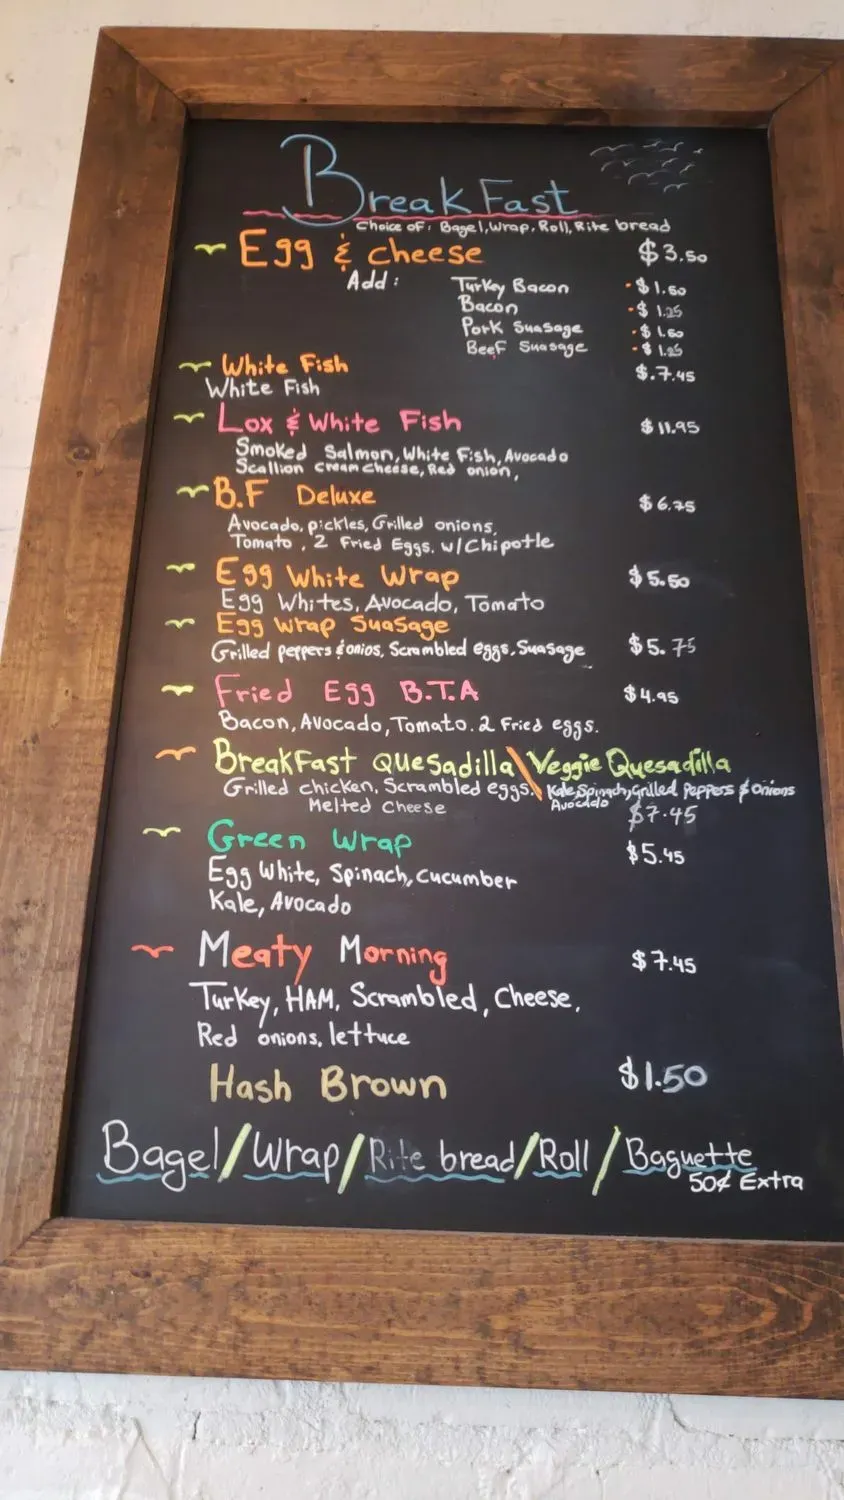 BreakFast
Choice of: Bagel, Wrap, Roll, Rite bread
Egg & cheese $3.50
Add: Turkey Bacon - $1.50
Bacon - $1.25
Pork Suasage - $1.50
Beef Suasage - $1.25
White Fish $.7.45
White Fish
Lox & White Fish $11.95
Smoked Salmon, White Fish, Avocado
Scallion cream cheese, Red onion,
B.F Deluxe $6.75
Avocado, pickles, Grilled onions,
Tomato, 2 Fried Eggs. w/Chipotle
Egg White Wrap $5.50
Egg Whites, Avocado, Tomato
Egg Wrap Suasage
Grilled peppers & onios, Scrambled eggs, Suasage $5.75
Fried Egg B.T.A $4.95
Bacon, Avocado, Tomato. 2 Fried eggs.
BreakFast quesadilla\Veggie Quesadilla
Grilled chicken, Scrambled eggs.\ Kale, Spinach, Grilled Peppers & onions
Melted cheese Avocado $7.45
Green Wrap $5.45
Egg White, Spinach, cucumber
Kale, Avocado
Meaty Morning $7.45
Turkey, HAM, Scrambled, Cheese,
Red onions, lettuce
Hash Brown $1.50
Bagel/Wrap/Rite bread/Roll/Baguette
50¢ Extra